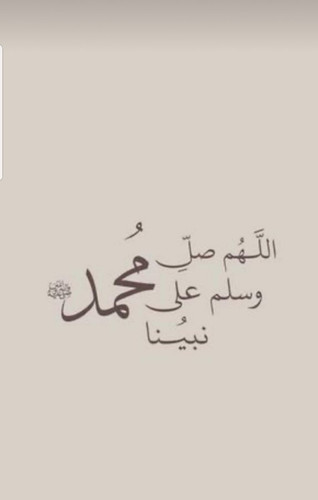 اللَّهُم صلِّ
وسلم على
نبيُنا
مُحمد ﷺ